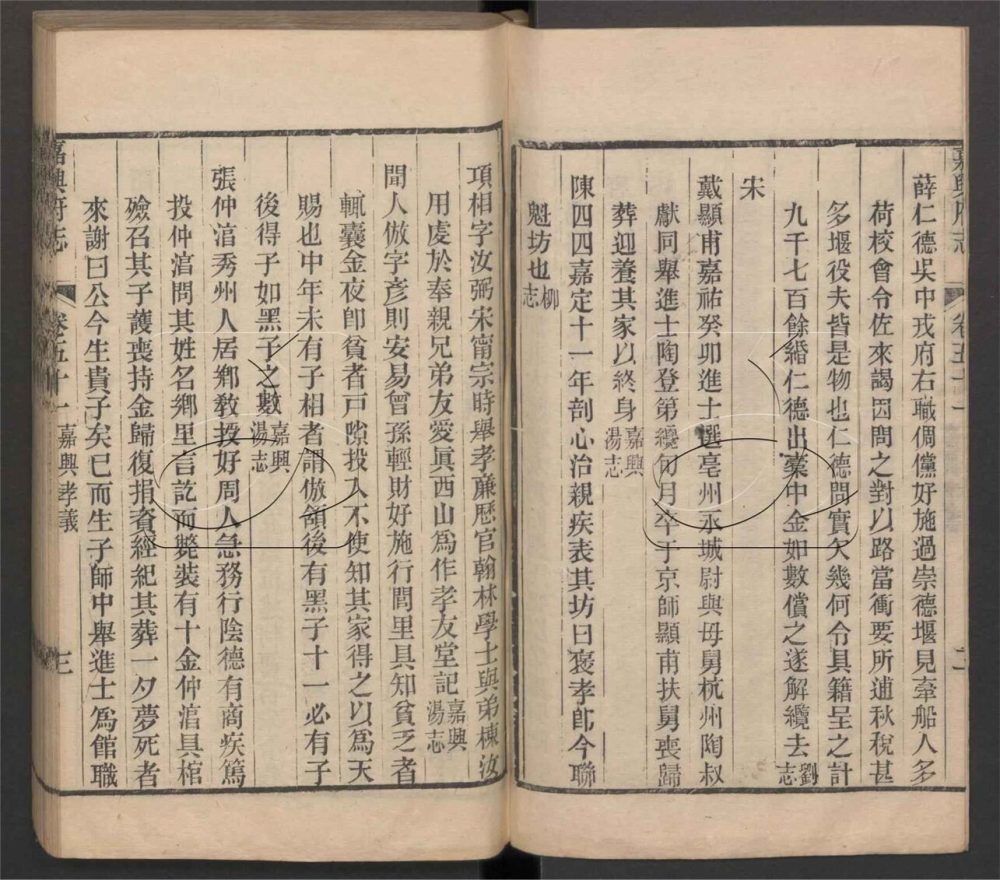 薛仁德吳中戎府右職倜儻好施過崇德堰見牽船人多
荷校會令佐來謁因問之對以路當衝要所逋秋稅甚
多堰役夫皆是物也仁德問實欠幾何令具籍呈之計
九千七百餘緡仁德出槖中金如數償之遂解纜去劉志
宋
戴顯甫嘉祐癸卯進士選亳州永城尉與母舅杭州陶叔
獻同舉進士陶登第纔旬月卒于京師顯甫扶舅喪歸
葬迎養其家以終身嘉興湯志
陳四四嘉定十一年剖心治親疾表其坊曰褒孝卽今聯
魁坊也柳志
嘉興府志
卷五十一
二
項相字汝弼宋甯宗時舉孝亷歷官翰林學士與弟棟汝
用虔於奉親兄弟友愛眞西山爲作孝友堂記嘉興湯志
聞人倣字彥則安易曾孫輕財好施行閭里具知貧乏者
輒囊金夜卽貧者戸隙投入不使知其家得之以爲天
賜也中年未有子相者謂倣頷後有黑子十一必有子
後得子如黑子之數嘉興湯志
張仲淯秀州人居鄕敎授好周人急務行陰德有商疾篤
投仲淯問其姓名鄕里言訖而斃装有十金仲淯具棺
殮召其子護喪持金歸復捐資經紀其葬一夕夢死者
來謝曰公今生貴子矣已而生子師中舉進士爲館職
嘉興府志
卷五十一
嘉興孝義
三